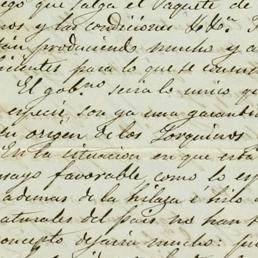 ego que salga el Paquete de
nos y las condiciones
están produciendo mucho y a
cientes para lo que se consum
El gobno. sera lo unico q
especie, son ya una garantia
su origen de los
En la situacion en que esta
mayo favorable, como lo es
ademas de la hilaza é hilo
naturales del pais no han
concepto dejarra mucho: